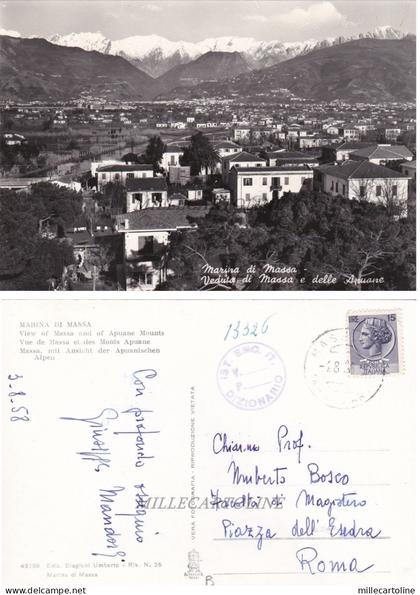 Marina di Massa -
Veduta di Massa e delle Apuane
MARINA DI MASSA
View of Massa and of Apuane Mounts
Vue de Massa et des Monts Apuane
Massa, mit Ansicht der Apuanischen
Alpen
3-8-58
Con profondo ossequio
Giuseppe
43259 Ediz. Biagioni Umberto - Riv. N. 26
Marina di Massa
VERA FOTOGRAFIA - RIPRODUZIONE VIETATA
13326
IST. ENC. IT.
V.
P.
DIZIONARIO
15
REPUBBLICA
ITALIANA
Chiarmo Prof.
Umberto Bosco
Facoltà di Magistero
Piazza dell'Esedra
Roma
MILLECARTOLINE
B
www.millecartoline.com